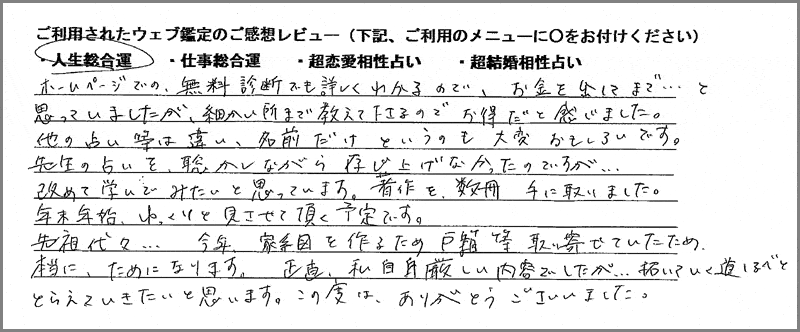 ご利用されたウェブ鑑定のご感想レビュー（下記、ご利用のメニューに〇をお付けください）
・人生総合運　・仕事総合運　・超恋愛相性占い　・超結婚相性占い
ホームページでの、無料診断でも詳しくわかるので、お金を出してまで…と
思っていましたが、細かい所まで教えて下さるのでお得だと感じました。
他の占い等は違い、名前だけというのも大変おもしろいです。
先生の占いを、恥かしながら存じ上げなかったのですが…
改めて学んでみたいと思っています。著作を、数冊手に取りました。
年末年始、ゆっくりと見させて頂く予定です。
先祖代々… 今年、家系図を作るため戸籍等取り寄せていたため、
本当に、ためになります。正直、私自身厳しい内容でしたが…拓いていく道しるべと
とらえていきたいと思います。この度は、ありがとうございました。